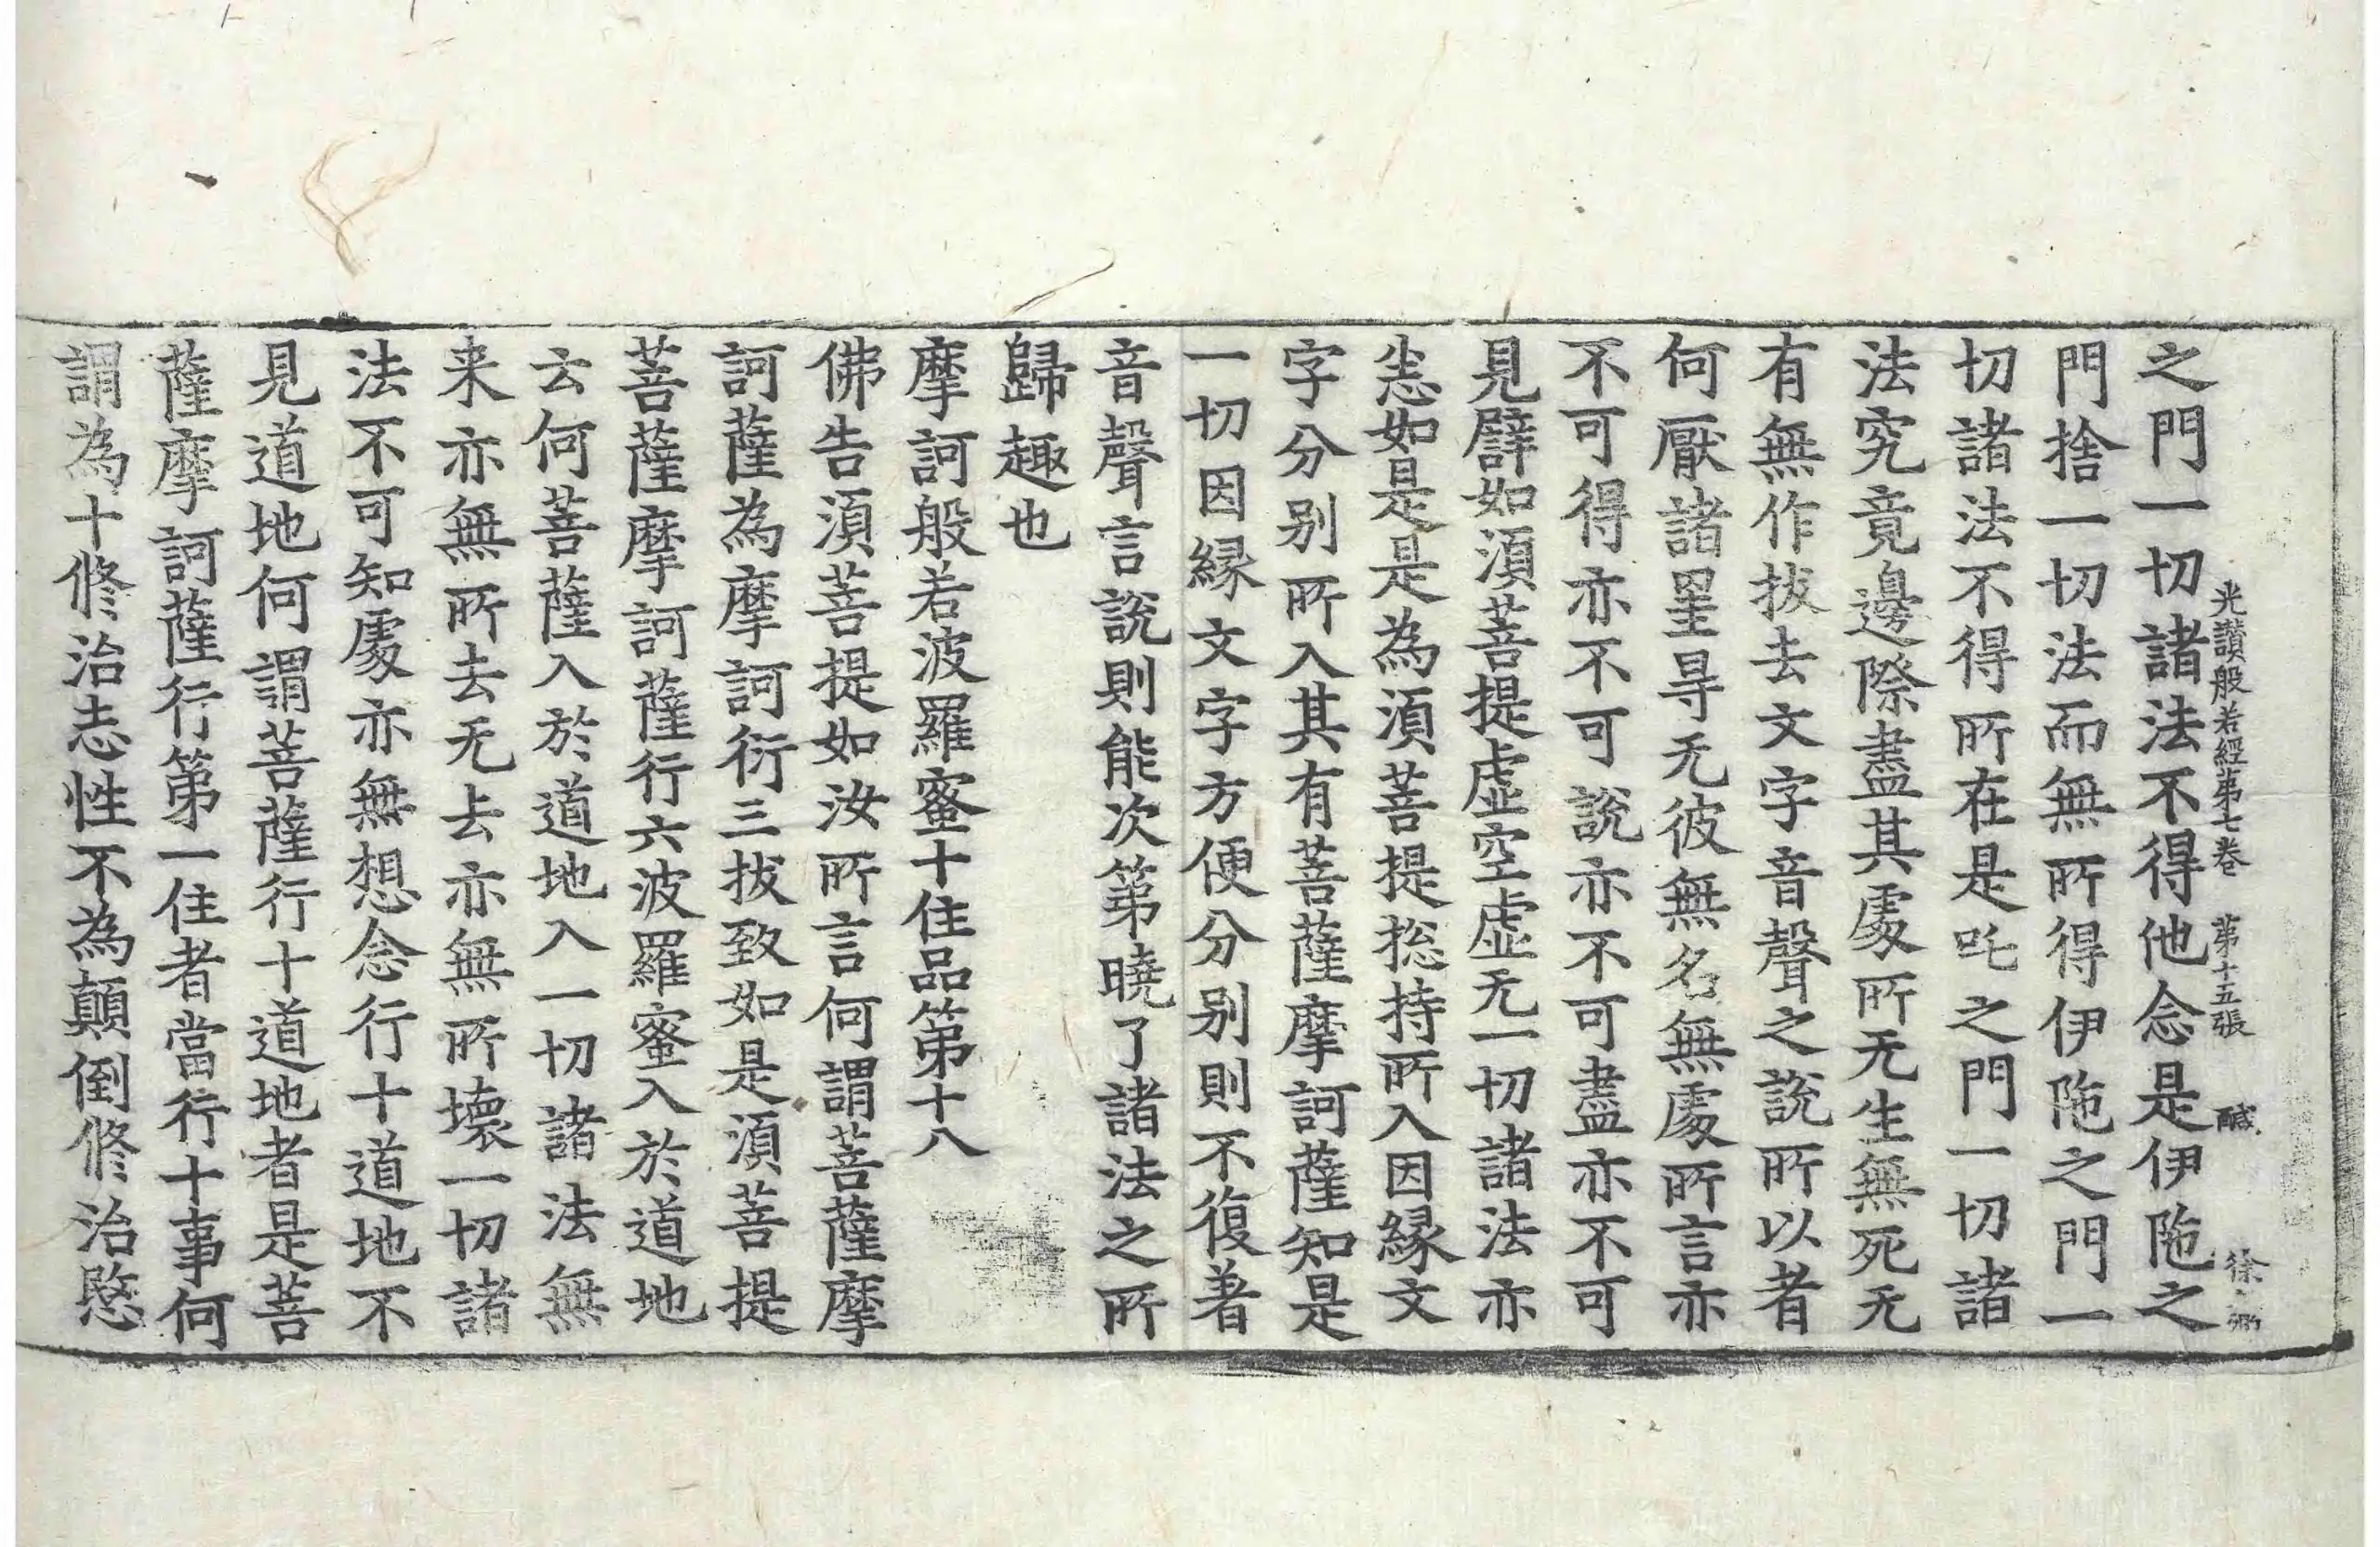 光讃般若經第七卷 第十五張 醎 徐
之門一切諸法不得他念是伊陁之
門捨一切法而無所得伊陁之門一
切諸法不得所在是吒之門一切諸
法究竟邊際盡其處所无生無死无
有無作拔去文字音聲之說所以者
何厭諸罣㝵无彼無名無處所言亦
不可得亦不可說亦不可盡亦不可
見譬如湏菩提虛空虛无一切諸法亦
悉如是是為湏菩提揔持所入因緣文
字分別所入其有菩薩摩訶薩知是
一切因緣文字方便分別則不復著
音聲言說則能次第曉了諸法之所
歸趣也
摩訶般若波羅蜜十住品第十八
佛告湏菩提如汝所言何謂菩薩摩
訶薩為摩訶衍三拔致如是湏菩提
菩薩摩訶薩行六波羅蜜入於道地
云何菩薩入於道地入一切諸法無
来亦無所去无去亦無所壞一切諸
法不可知處亦無想念行十道地不
見道地何謂菩薩行十道地者是菩
薩摩訶薩行第一住者當行十事何
謂為十修治志性不為顛倒修治愍